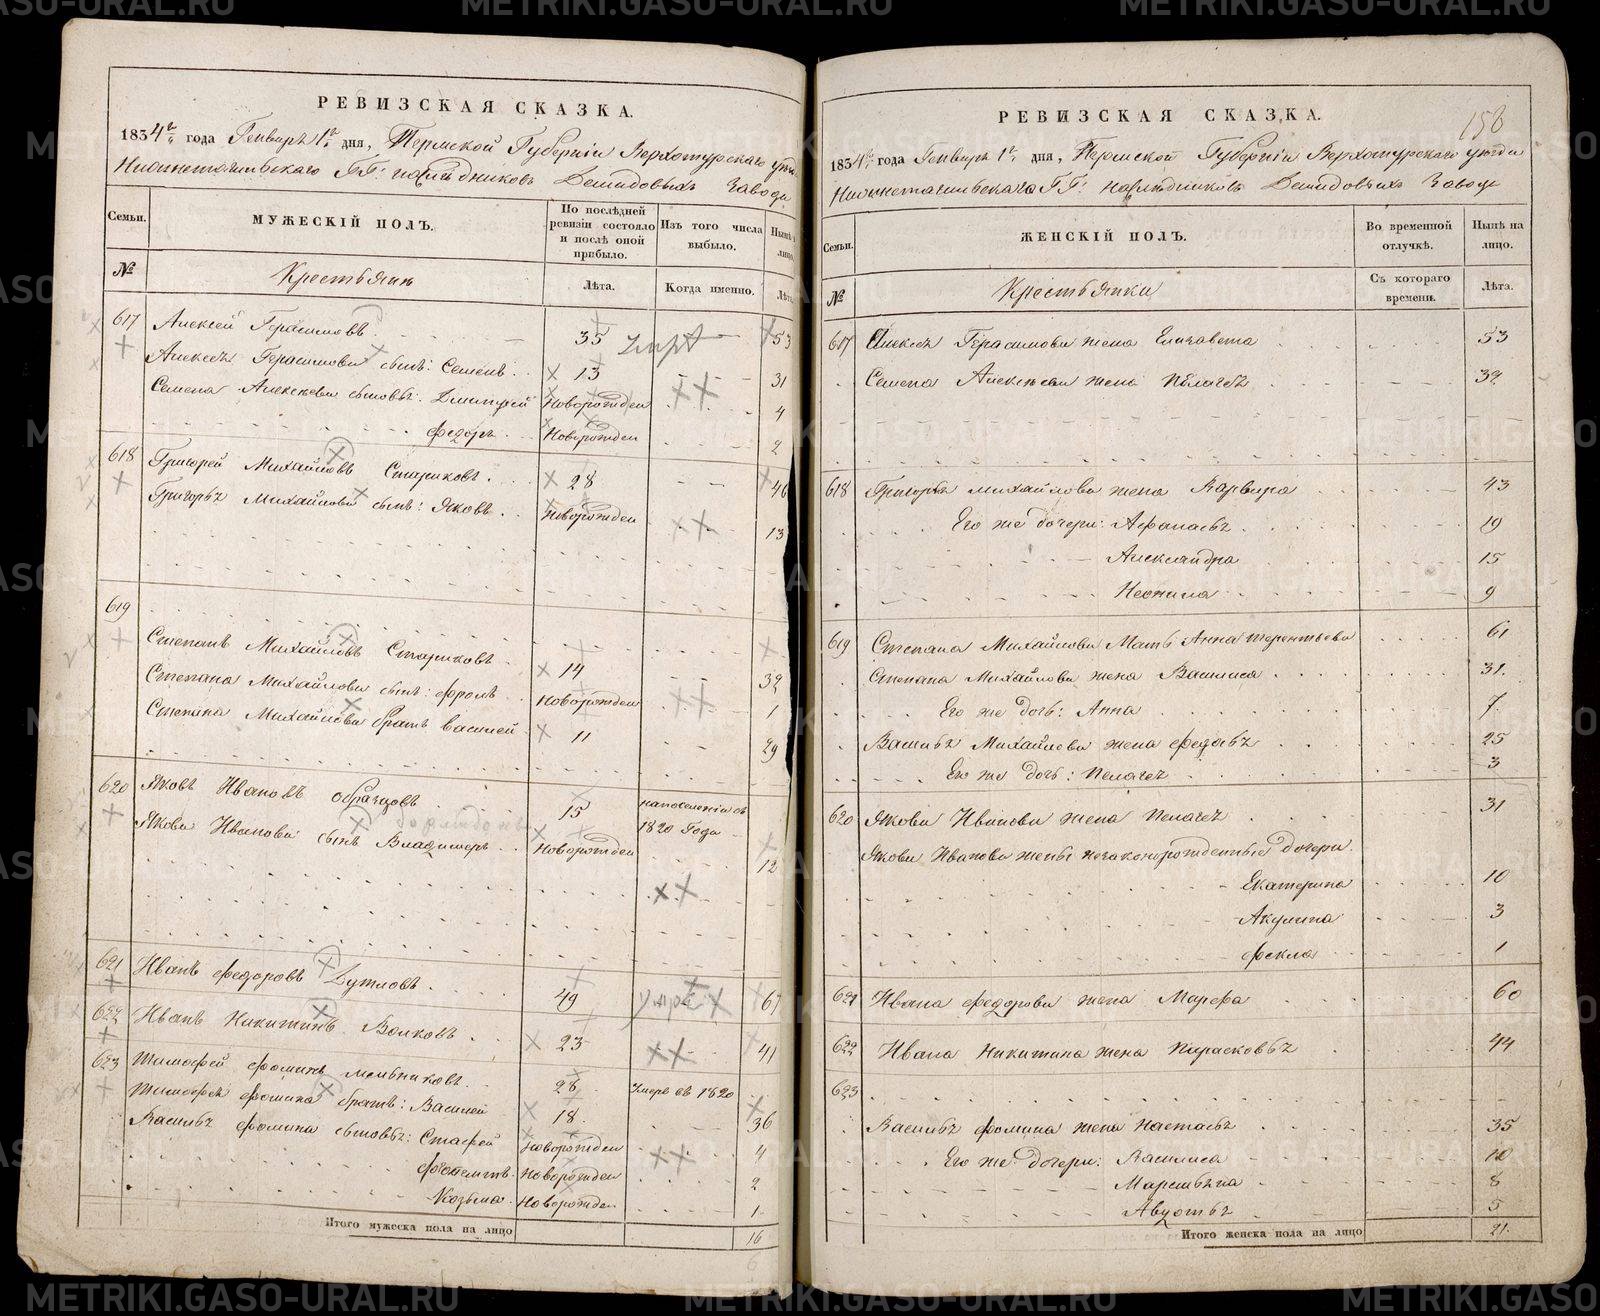 РЕВИЗСКАЯ СКАЗКА.
1834 года Генваря 1 дня, Пермской Губерніи Верхотурскаго уезда
Нижнетагильскаго ГГ: наследниковъ Демидовыхъ Завода
Семьи.
МУЖЕСКІЙ ПОЛЪ.
По послѣдней ревизіи состояло и послѣ оной прибыло.
Изъ того числа выбыло.
Нынѣ лицо.
№
Крестьяне
Лѣта.
Когда именно.
Лѣта.
617 Алексей Герасимовъ 35 53
Алексея Герасимова сынъ: Семенъ 13 31
Семена Алексеева сыновья: Дмитрей Новорожден 4
Федоръ Новорожден 2
618 Григорей Михайловъ Стариковъ 28 46
Григорья Михайлова сынъ: Яковъ Новорожден 13
619
Степанъ Михайловъ Стариковъ 14 32
Степана Михайлова сынъ: Фролъ Новорожден 1
Степана Михайлова братъ Василей 11 29
620 Яковъ Ивановъ Образцовъ 15 на поселеніи съ 1820 Года
Якова Иванова сынъ Владимеръ Новорожден 12
621 Иванъ Федоровъ Дутловъ 49 67
622 Иванъ Никитинъ Волковъ 23 41
623 Тимофей Фоминъ Мельниковъ 28 Умеръ въ 1820
Тимофея Фомина братъ: Василей 18 36
Василья Фомина сыновья: Стафей Новорожден 4
Новорожден 2
Козьма Новорожден 1
Итого мужеска пола на лицо 16
РЕВИЗСКАЯ СКАЗКА.
156
1834 года Генваря 1 дня, Пермской Губерніи Верхотурскаго уезда
Нижнетагильскаго ГГ: наследниковъ Демидовыхъ Завода
Семьи.
ЖЕНСКІЙ ПОЛЪ.
Во временной отлучкѣ.
Нынѣ на лицо.
№
Крестьянки
Съ котораго времени.
Лѣта.
617 Алексея Герасимова жена Елизавета 53
Семена Алексеева жена Пелагея 32
618 Григорья Михайлова жена Варвара 43
Его же дочери: Афанасья 19
Александра 15
Неонила 9
619 Степана Михайлова Мать Анна Терентьева 61
Степана Михайлова жена Василиса 31
Его же дочь: Анна 7
Василья Михайлова жена Федосья 25
Его же дочь: Пелагея 3
620 Якова Иванова жена Пелагея 31
Якова Иванова жены незаконорожденные дочери
Екатерина 10
Акулина 3
Фекла 1
621 Ивана Федорова жена Марфа 60
622 Ивана Никитина жена Парасковья 44
623
Василья Фомина жена Настасья 35
Его же дочери: Василиса 10
Маремьяна 8
Авдотья 5
Итого женска пола на лицо 21
METRIKI.GASO-URAL.RU